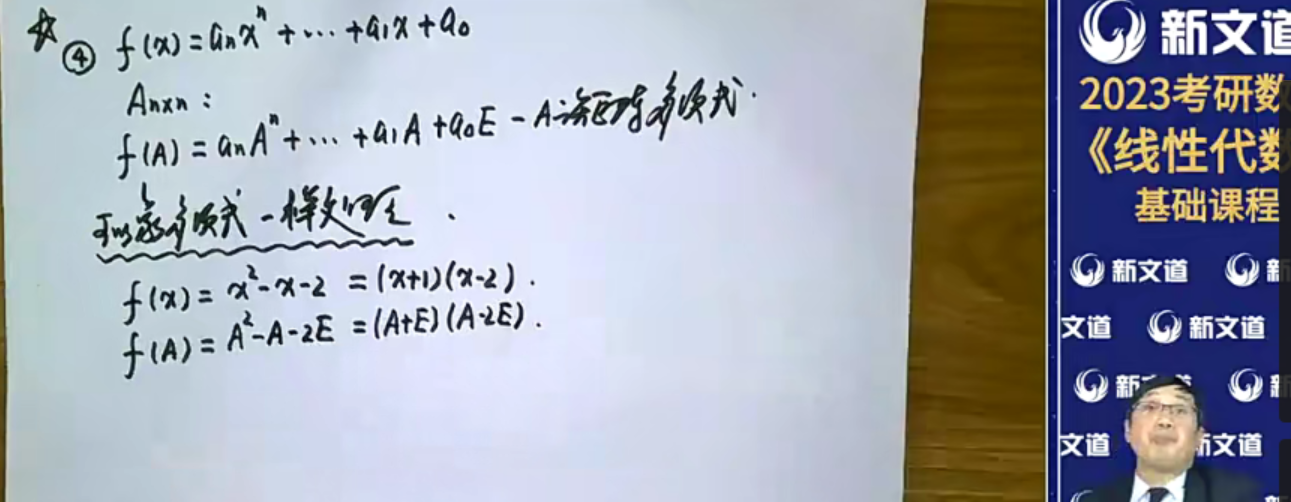 ☆ ④ f(x) = aₙxⁿ + ⋯ + a₁x + a₀
Aₙₓₙ :
f(A) = aₙAⁿ + ⋯ + a₁A + a₀E - A 矩阵多项式.
多项式一样
f(x) = x² - x - 2 = (x+1)(x-2).
f(A) = A² - A - 2E = (A+E)(A-2E).
新文道
2023考研数
《线性代数
基础课程
新文道 新
文道 新文道
新文道 新
文道 新文道